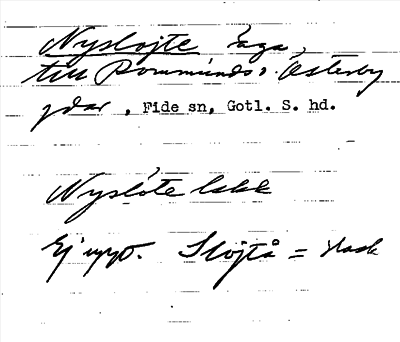 Nyslojte äga,
till Pormunds o. Österby
gdar, Fide sn, Gotl. S. hd.
Nyslöte
Ej uppt. Slöjtå = slask